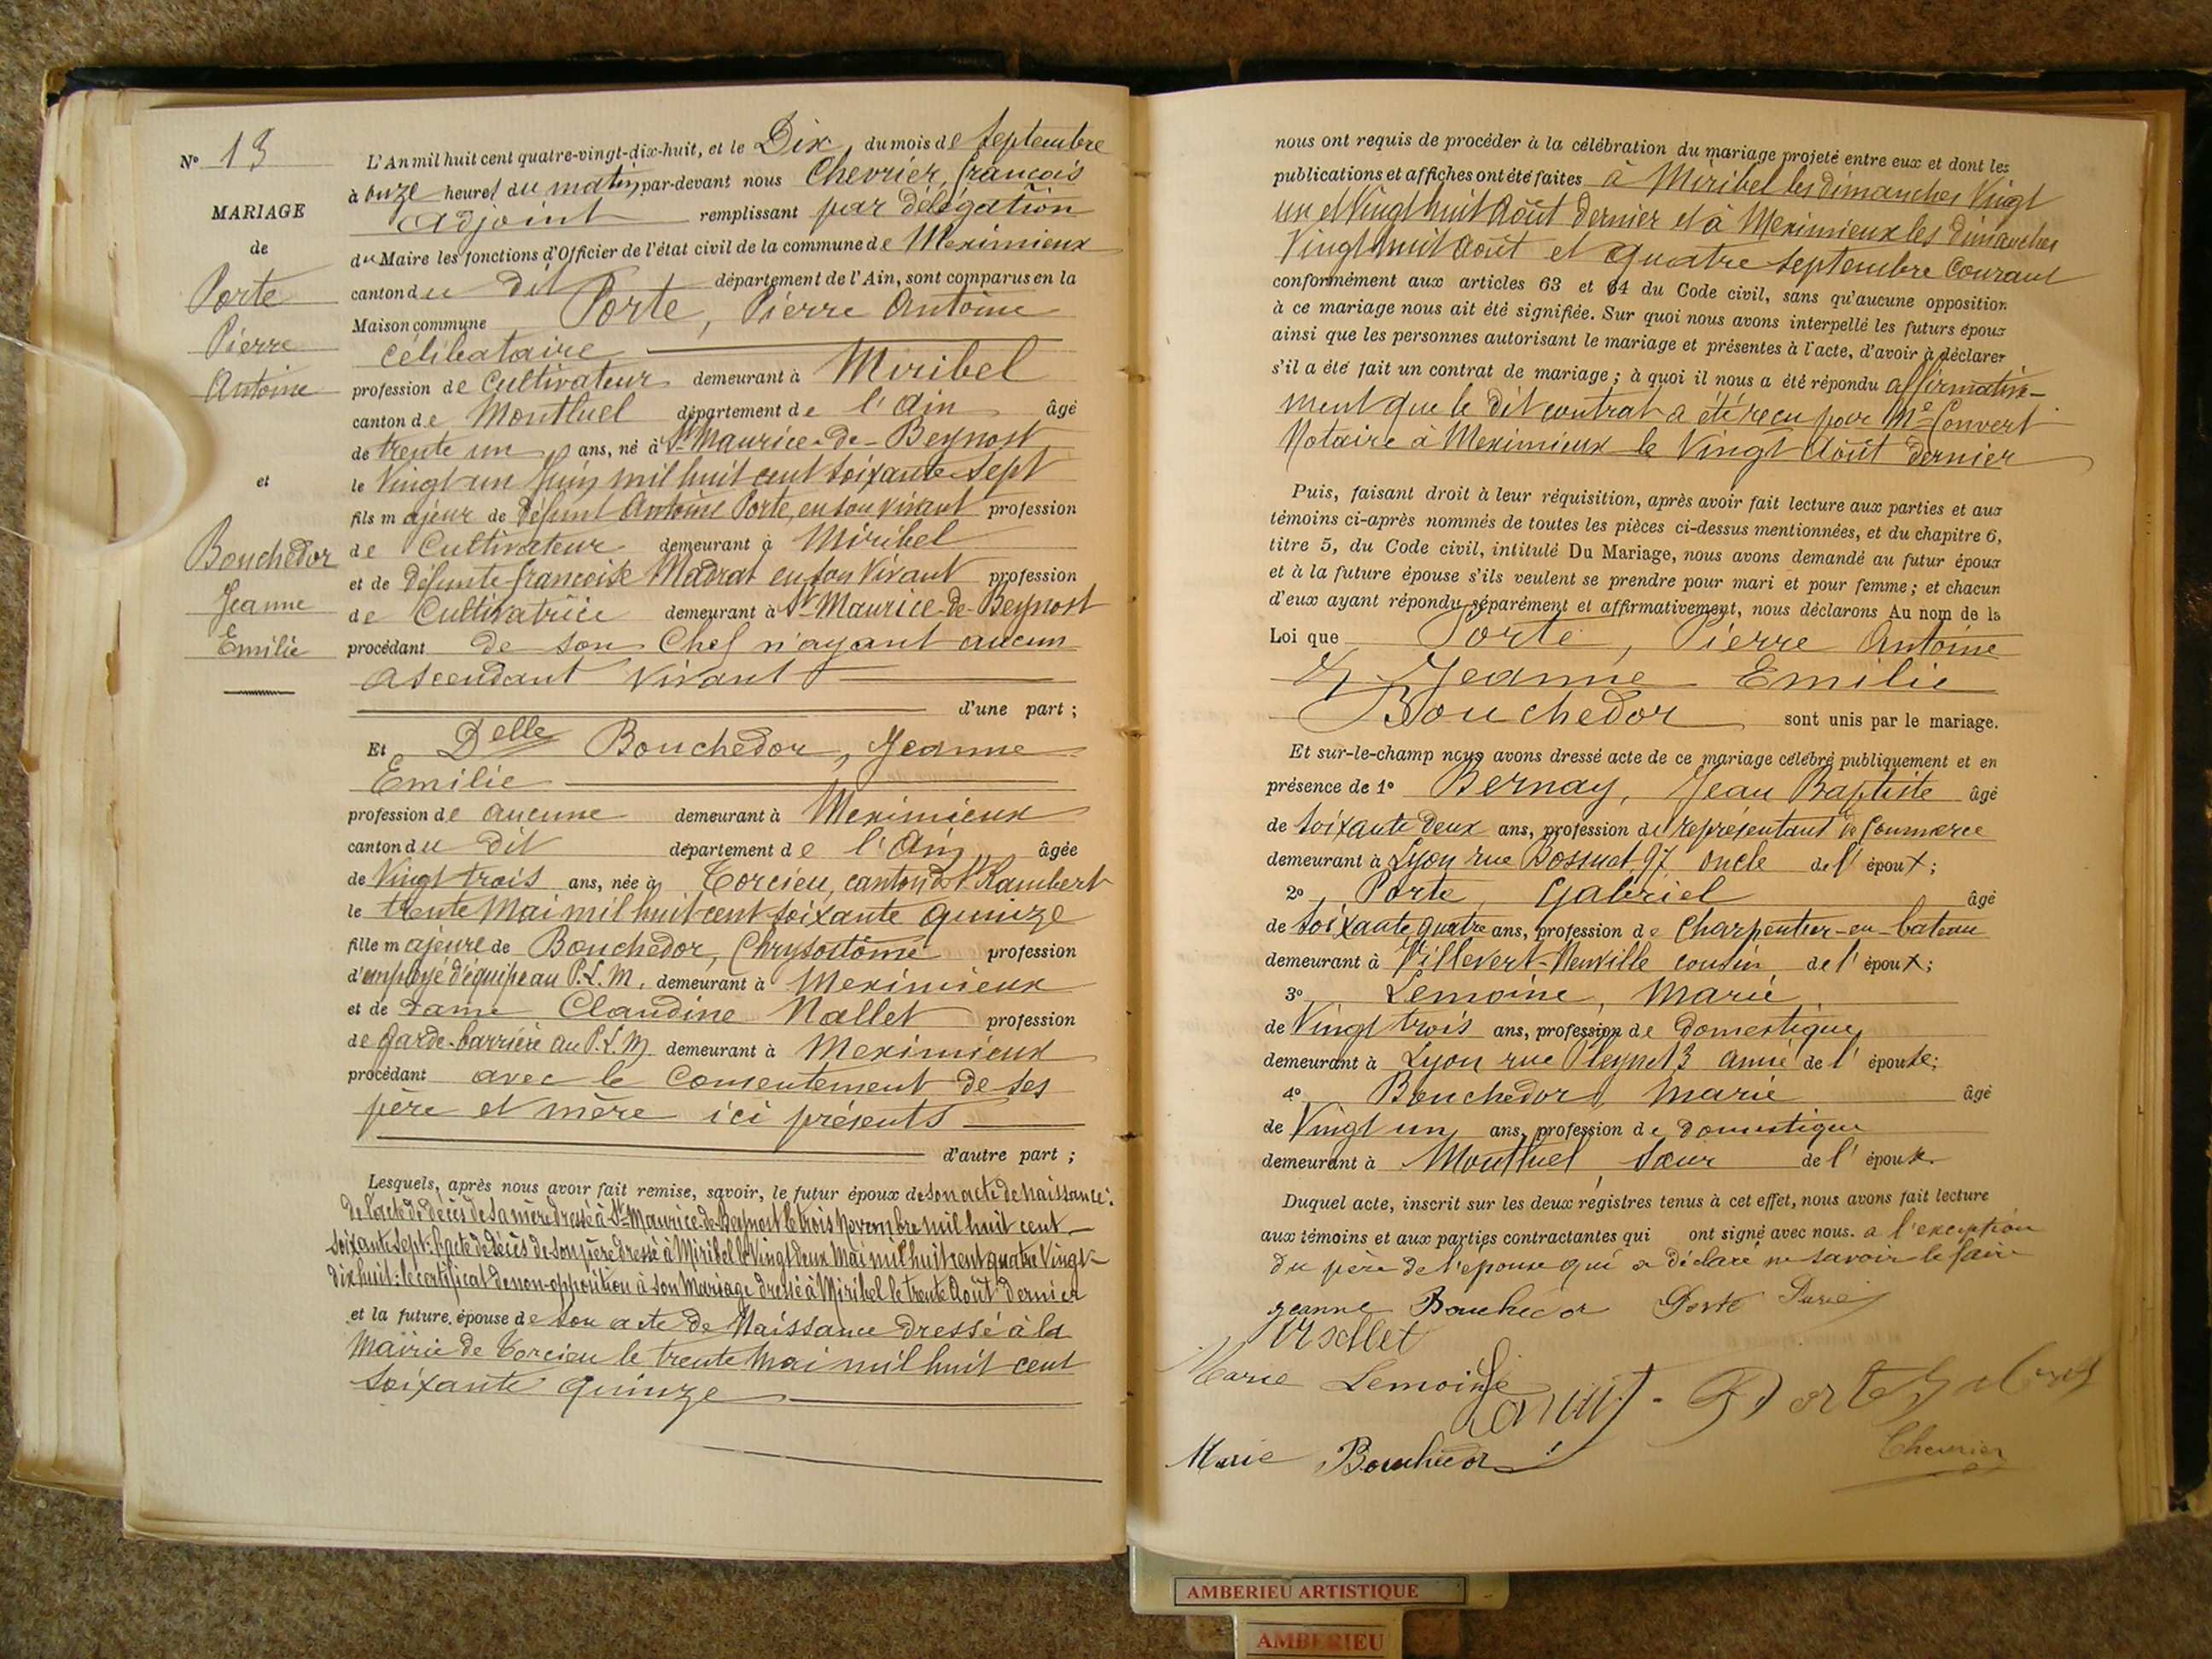 N° 13
MARIAGE
de
Porte
Pierre
Antoine
et
Bouchedor
Jeanne
Emilie
L'An mil huit cent quatre-vingt-dix-huit, et le Dix, du mois de Septembre
à onze heures du matin, par-devant nous Chevrier, françois
adjoint remplissant par délégation
du Maire les fonctions d'Officier de l'état civil de la commune de Meximieux
canton du dit département de l'Ain, sont comparus en la
Maison commune Porte, Pierre Antoine
célibataire
profession de Cultivateur demeurant à Miribel
canton de Montluel département de l'Ain âgé
de trente un ans, né à St Maurice-de-Beynost
le Vingt un Juin mil huit cent soixante sept
fils majeur de défunt Antoine Porte, en son vivant profession
de Cultivateur demeurant à Miribel
et de défunte françoise Madrat en son vivant profession
de Cultivatrice demeurant à St Maurice-de-Beynost
procédant de son Chef n'ayant aucun
ascendant vivant
d'une part ;
Et Delle Bouchedor, Jeanne
Emilie
profession de aucune demeurant à Meximieux
canton du dit département de l'Ain âgée
de Vingt trois ans, née à Torcieu, canton de St Rambert
le trente Mai mil huit cent soixante quinze
fille majeure de Bouchedor, Chrysostôme profession
d'employé d'équipe au P.L.M. demeurant à Meximieux
et de dame Claudine Nallet profession
de garde-barrière au P.L.M. demeurant à Meximieux
procédant avec le consentement de ses
père et mère ici présents
d'autre part ;
Lesquels, après nous avoir fait remise, savoir, le futur époux de son acte de naissance:
de l'acte de décès de sa mère dressé à St Maurice-de-Beynost le trois Novembre mil huit cent
soixante sept: l'acte de décès de son père dressé à Miribel le Vingt deux Mai mil huit cent quatre Vingt
dix huit: le certificat de non-opposition à son Mariage dressé à Miribel le trente Août dernier
et la future épouse de son acte de Naissance dressé à la
Mairie de Torcieu le trente Mai mil huit cent
soixante quinze
nous ont requis de procéder à la célébration du mariage projeté entre eux et dont les
publications et affiches ont été faites à Miribel les dimanches Vingt
un et Vingt huit Août dernier et à Meximieux les dimanches
Vingt huit Août et quatre Septembre Courant
conformément aux articles 63 et 64 du Code civil, sans qu'aucune opposition
à ce mariage nous ait été signifiée. Sur quoi nous avons interpellé les futurs époux
ainsi que les personnes autorisant le mariage et présentes à l'acte, d'avoir à déclarer
s'il a été fait un contrat de mariage ; à quoi il nous a été répondu affirmative-
ment que le dit contrat a été reçu par Me Convert
Notaire à Meximieux le Vingt Août dernier
Puis, faisant droit à leur réquisition, après avoir fait lecture aux parties et aux
témoins ci-après nommés de toutes les pièces ci-dessus mentionnées, et du chapitre 6,
titre 5, du Code civil, intitulé Du Mariage, nous avons demandé au futur époux
et à la future épouse s'ils veulent se prendre pour mari et pour femme ; et chacun
d'eux ayant répondu séparément et affirmativement, nous déclarons Au nom de la
Loi que Porte, Pierre Antoine
Et Jeanne Emilie
Bouchedor sont unis par le mariage.
Et sur-le-champ nous avons dressé acte de ce mariage célébré publiquement et en
présence de 1° Bernay, Jean Baptiste âgé
de soixante deux ans, profession de représentant de Commerce
demeurant à Lyon rue Bossuet 97 oncle de l'époux ;
2° Porte, Gabriel âgé
de soixante quatre ans, profession de Charpentier-en-bateau
demeurant à Villevert-Neuville cousin de l'époux ;
3° Lemoine, Marie
de Vingt trois ans, profession de domestique
demeurant à Lyon rue Pleynet 3 amie de l'épouse ;
4° Bouchedor, Marie âgé
de Vingt un ans, profession de domestique
demeurant à Montluel, sœur de l'épouse.
Duquel acte, inscrit sur les deux régistres tenus à cet effet, nous avons fait lecture
aux témoins et aux parties contractantes qui ont signé avec nous. à l'exception
du père de l'épouse qui a déclaré ne savoir le faire
Jeanne Bouchedor Porte
Marie Lemoine
Porte Gabriel
Marie Bouchedor
Chevrier
AMBERIEU ARTISTIQUE
AMBERIEU